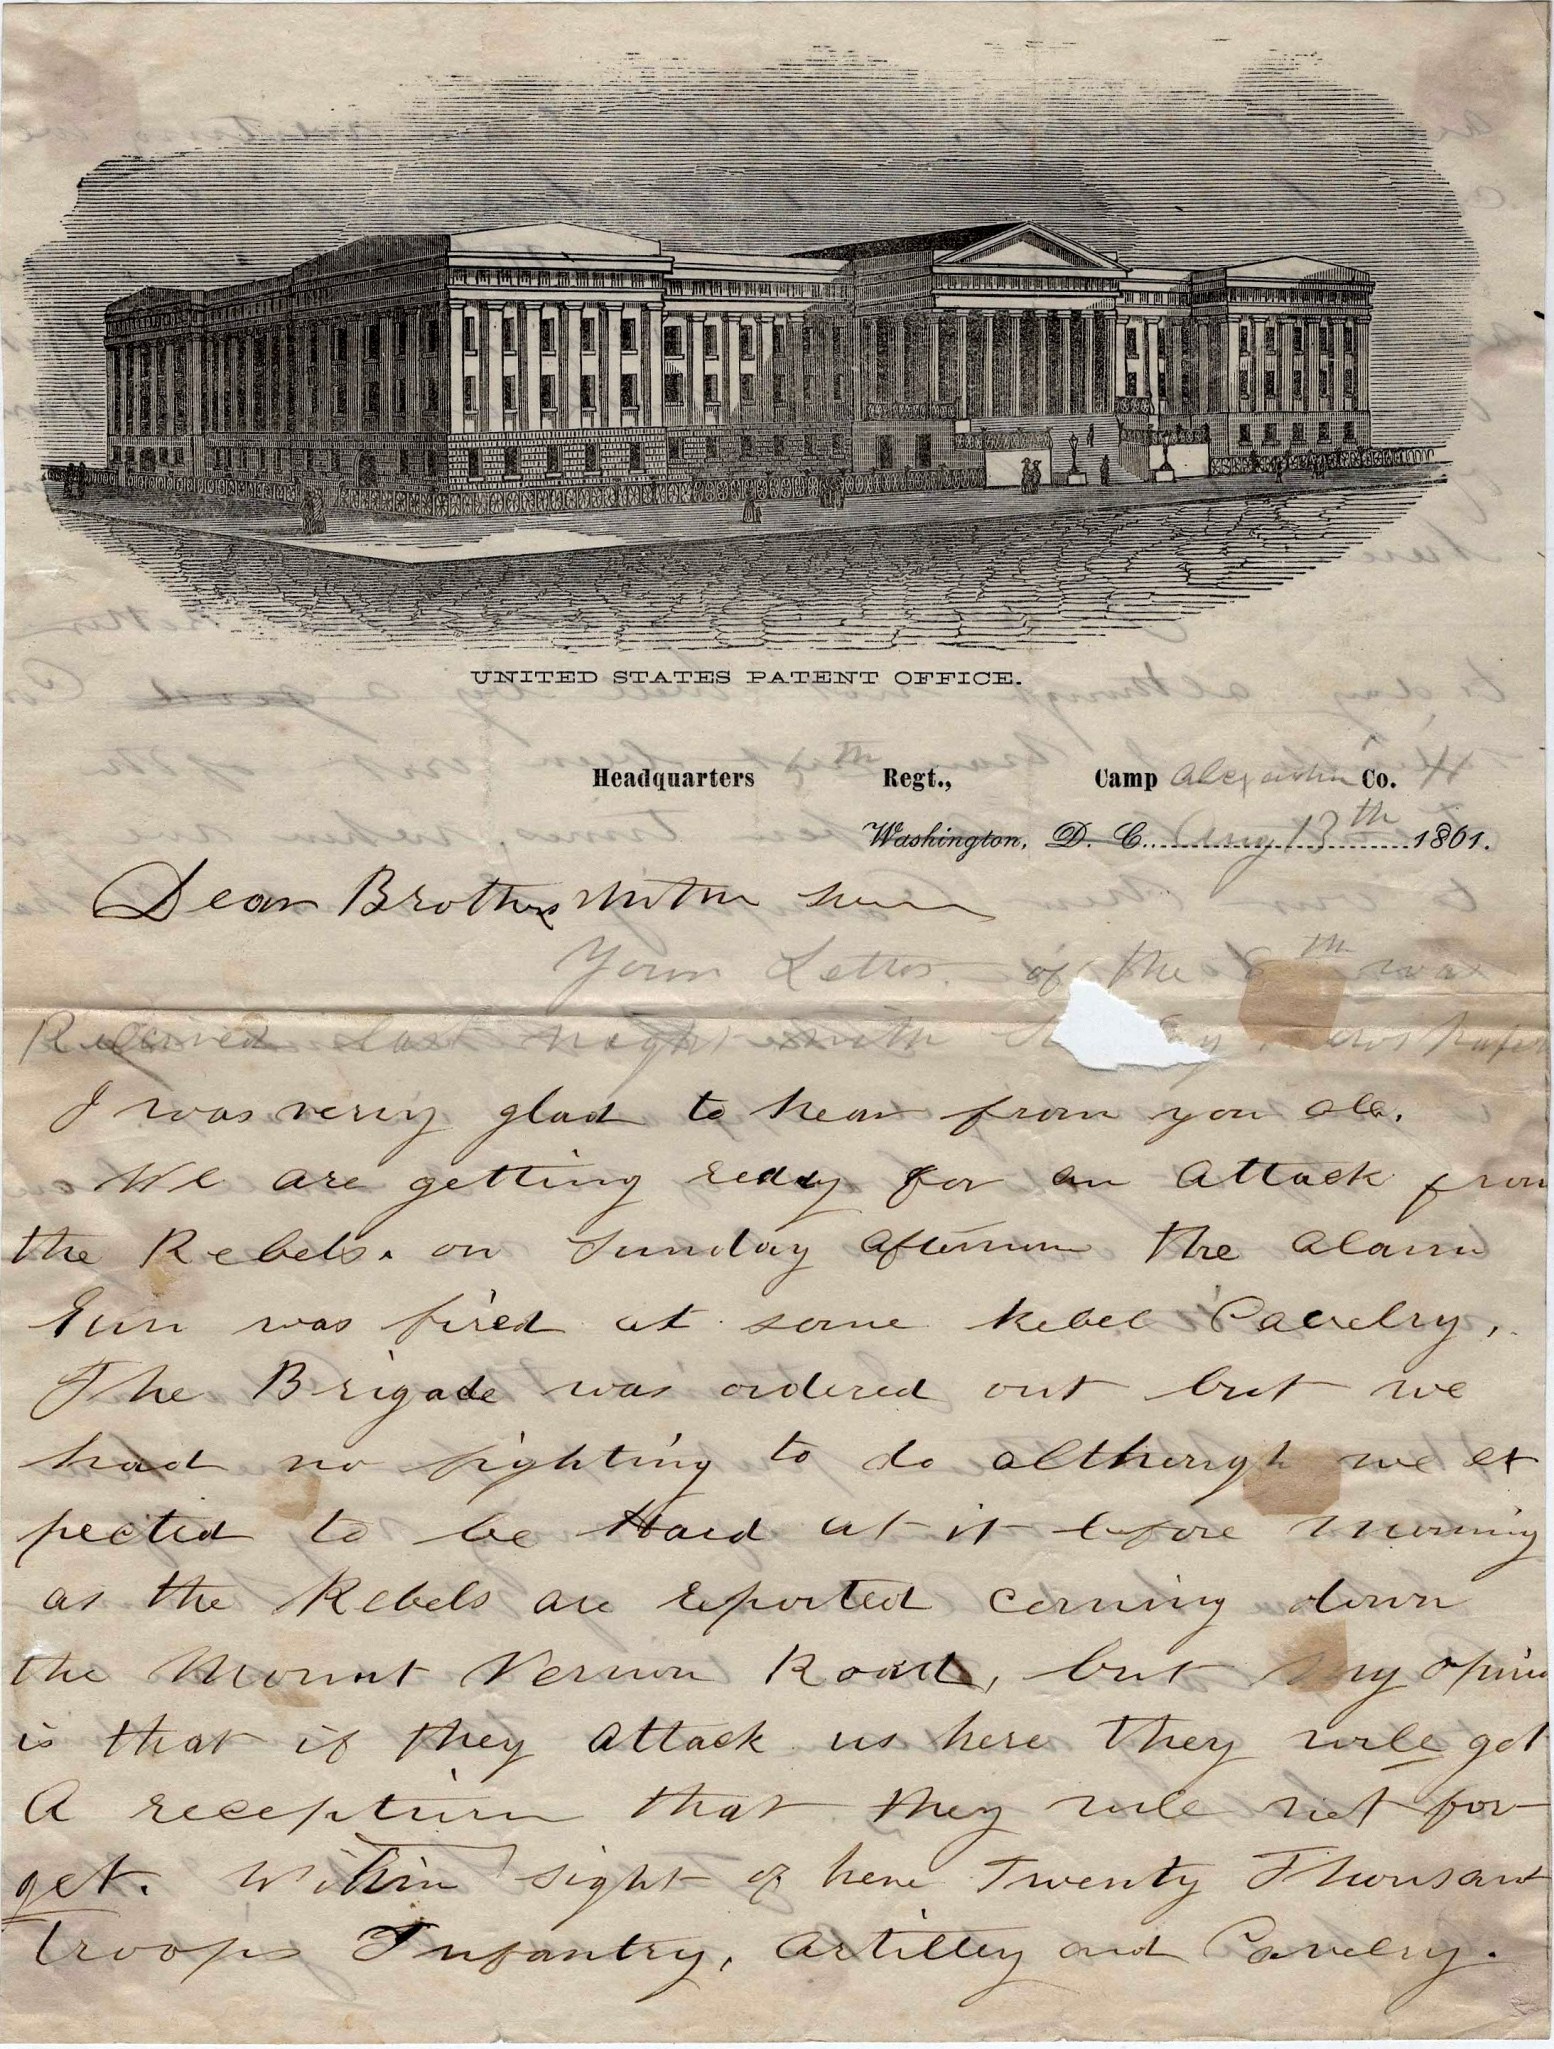 UNITED STATES PATENT OFFICE.
Headquarters th Regt., Camp Alexandria Co.
Washington, D. C. Aug 13th 1861.
Dear Brother
Your Letter of the 8th was
Received last night with
I was very glad to hear from you all.
We are getting redy for an attack from
the Rebels. on Sunday afternoon the alarm
Gun was fired at some Rebel Cavelry,
The Brigade was ordered out but we
had no fighting to do although we ex
pected to be Hard at it before morning
as the Rebels are reported coming down
the Mount Vernon Road, but my opinion
is that if they attack us here they will get
A reception that they will not for
get. Within sight of here Twenty Thousand
troops Infantry, Artillery and Cavelry.